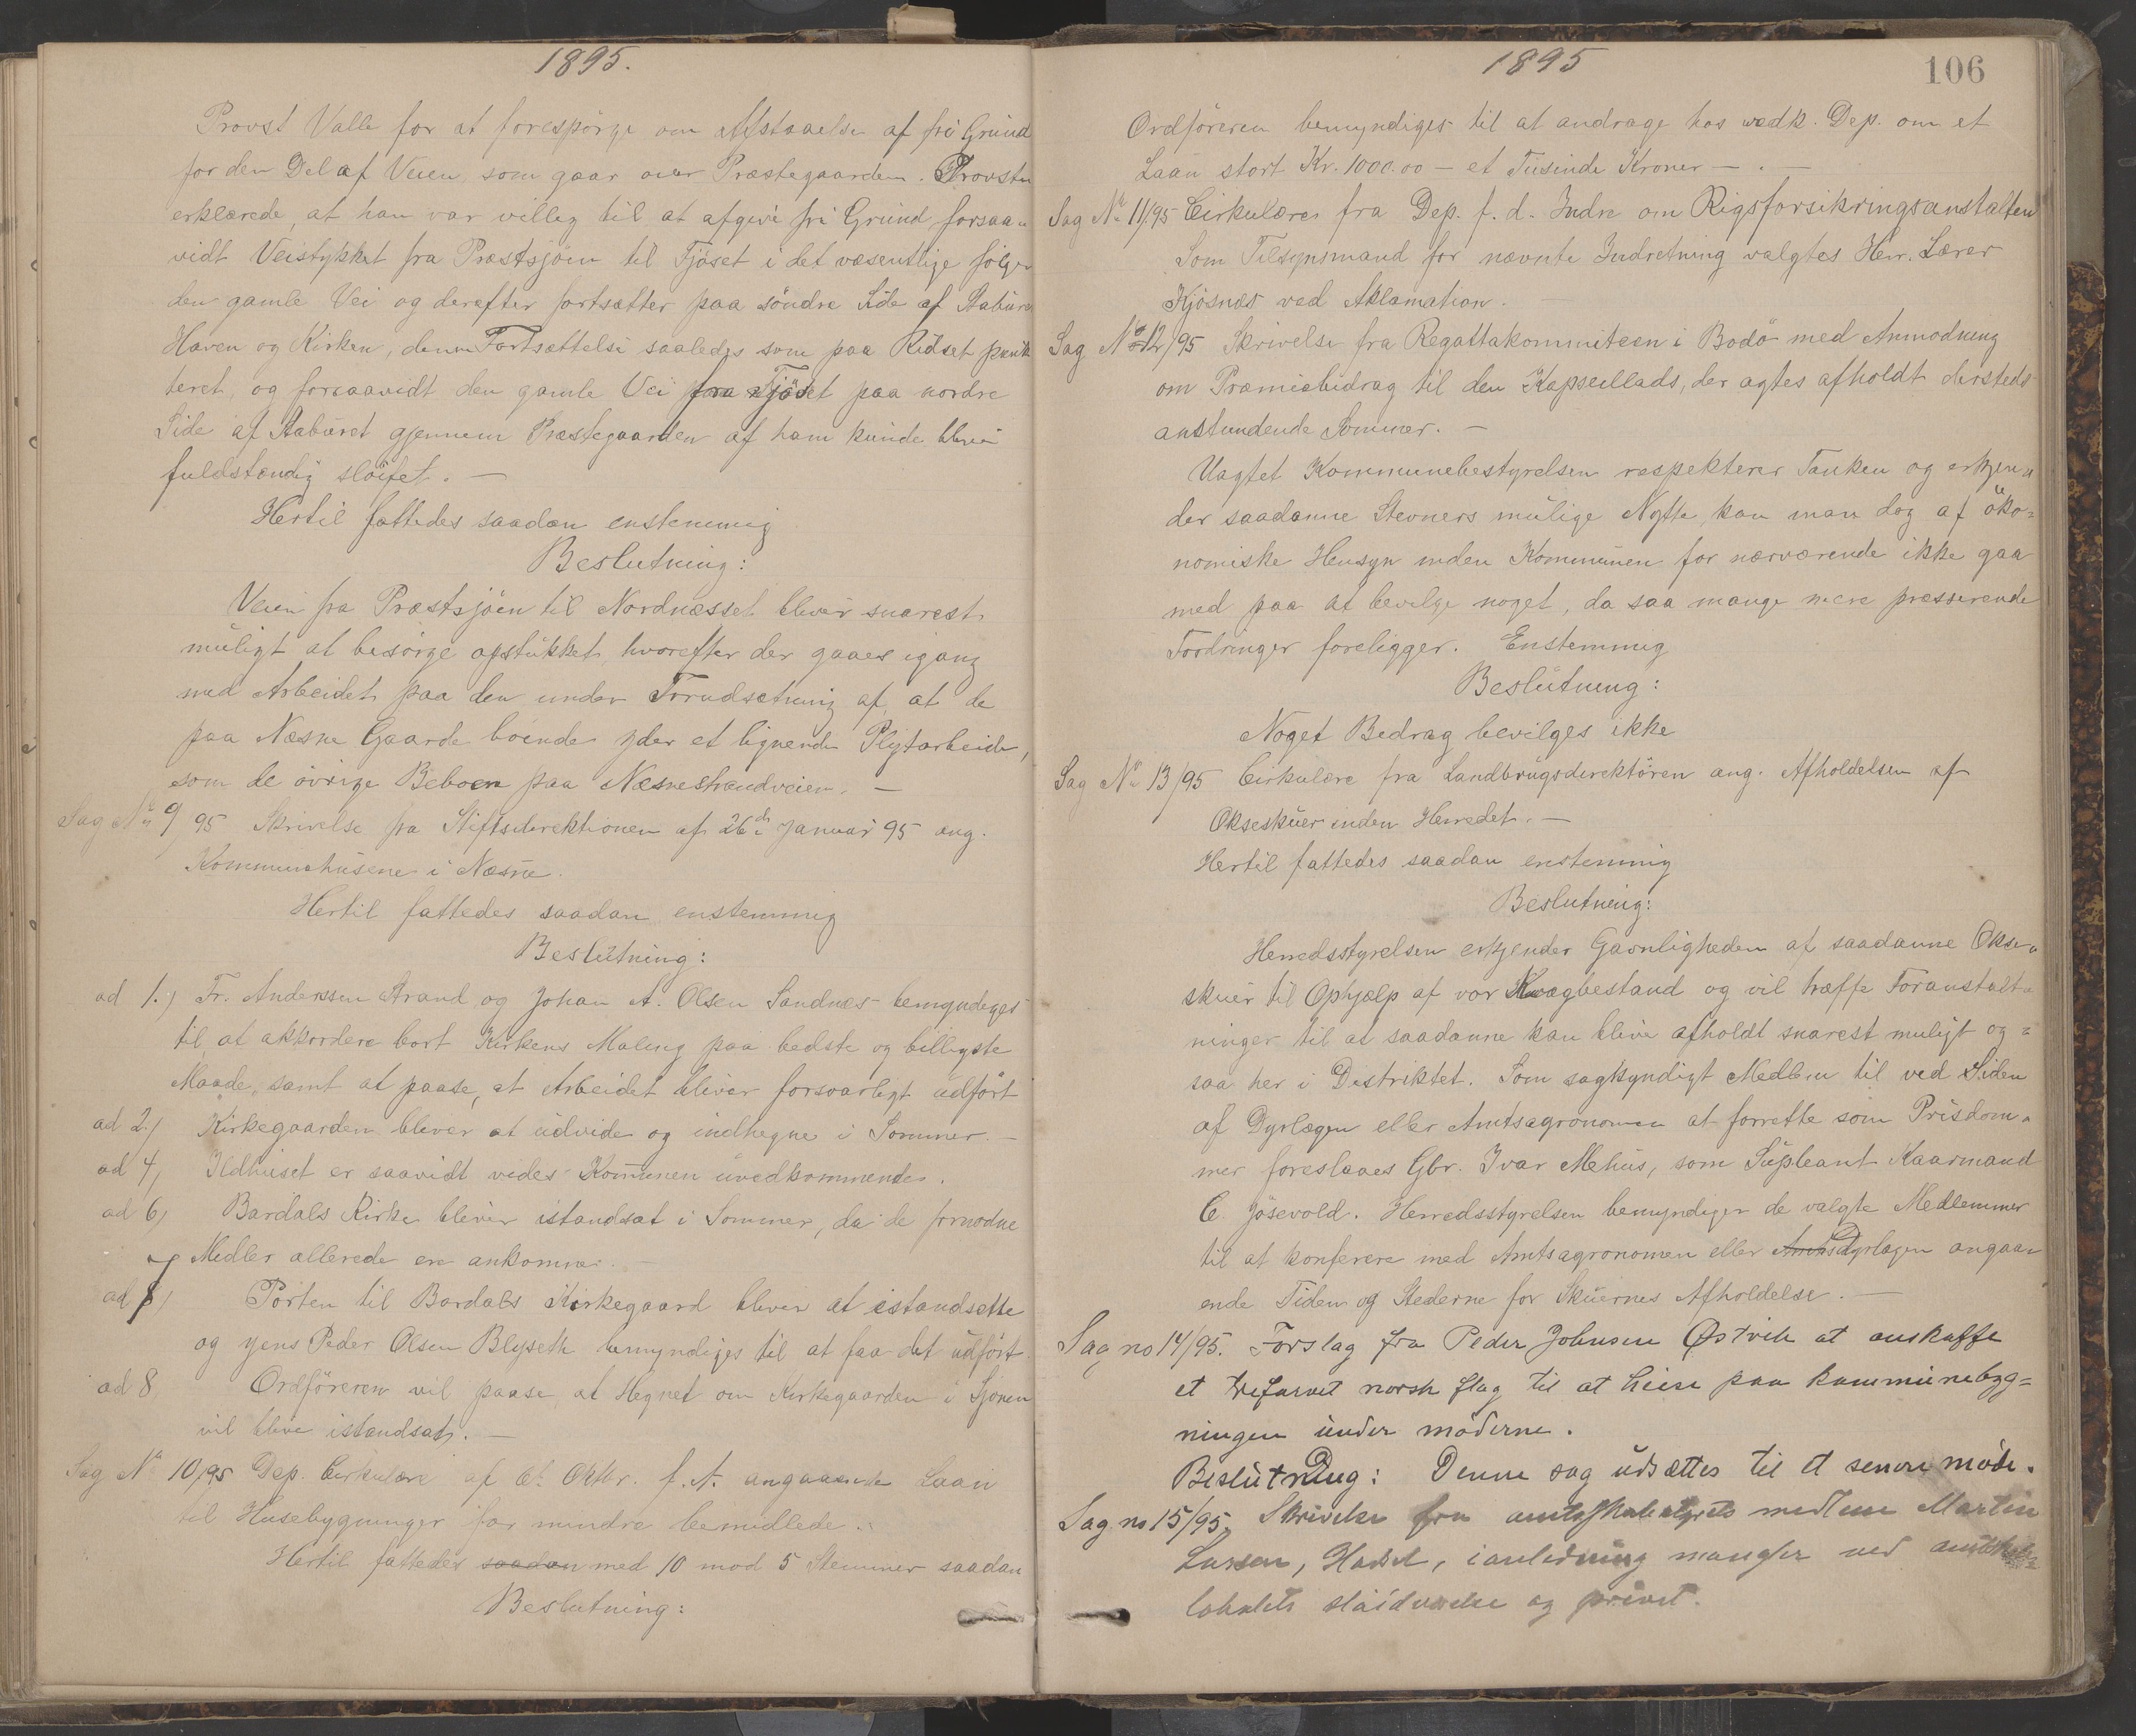 1895.
Provst Valle for at forespörge om Afstaaelse af fri Grund
for den Del af Veien, som gaar over Præstegaarden. Provsten
erklærede, at han var villig til at afgive fri Grund forsaa-
vidt Veistykket fra Præstsjöen til Fjöset i det væsentlige følger
den gamle Vei og derefter fortsætter paa söndre Side af Stabur
Haven og Kirken, denne Fortsættelse saaledes som paa Ridset punk
teret, og forsaavidt den gamle Vei fra Fjöset paa nordre
Side af Staburet gjennem Præstegaarden af ham kunde blive
fuldstændig slöifet. —
Hertil fattedes saadan enstemmig
Beslutning:
Veien fra Præstsjöen til Nordnæsset bliver snarest
muligt at besörge opstukket, hvorefter der gaaes igang
med Arbeidet paa den under Forudsetning af, at de
paa Næsne Gaarde boende yder et lignende Pligtarbeide,
som de övrige Beboere paa Næsnestrandveien. —
Sag No 9/95 Skrivelse fra Stiftsdirektionen af 26de Januar 95 ang.
Kommunehusene i Næsne.
Hertil fattedes saadan enstemmig
Beslutning:
ad 1.) Fr. Anderssen Strand og Johan A. Olsen Sandnæs bemyndiges
til at akkordere bort Kirkens Maling paa bedste og billigste
Maade, samt at paase, at Arbeidet bliver forsvarligt udfört
ad 2.) Kirkegaarden bliver at udvide og indhegne i Sommer. —
ad 4) Ildhuset er saavidt vides Kommunen uvedkommende.
ad 6) Bardals Kirke bliver istandsat i Sommer, da de fornödne
Midler allerede ere ankomne. —
ad 7) Porten til Bardals Kirkegaard bliver at istandsætte
og Peder Olsen Blyseth bemyndiges til at faa det udfört
ad 8 Ordföreren vil paase, at Hegnet om Kirkegaarden i Sjonen
vil blive istandsat. —
Sag No 10/95 Dep. Cirkulære af Oktbr. f. A. angaaende Laan
til Husebygninger for mindre bemidlede.
Hertil fattedes saadan med 10 mod 5 Stemmer saadan
Beslutning:
1895
106
Ordföreren bemyndiges til at andrage hos vedk. Dep. om et
Laan stort Kr. 1000.00 — et Tusinde Kroner — . —
Sag No 11/95 Cirkulære fra Dep. f. d. Indre om Rigsforsikringsanstalten
Som Tilsynsmand for nævnte Indretning valgtes Herr. Lærer
Kjösnæs ved Aklamation. —
Sag No 12/95 Skrivelse fra Regattakommiteen i Bodö med Anmodning
om Præmiebidrag til den Kapseillads, der agtes afholdt dersteds
anstundende Sommer. —
Uagtet Kommunebestyrelsen respekterer Tanken og erkjen-
der saadanne Stevners mulige Nytte, kan man dog af öko-
nomiske Hensyn inden Kommunen for nærværende ikke gaa
med paa at bevilge noget, da saa mange mere presserende
Fordringer foreligger. Enstemmig
Beslutning:
Noget Bedrag bevilges ikke
Sag No 13/95 Cirkulære fra Landbrugsdirektören ang. Afholdelsen af
Okseskuer inden Herredet. —
Hertil fattedes saadan enstemmig
Beslutning:
Herredsstyrelsen erkjender Gavnligheden af saadanne Okse-
skuer til Ophjælp af vor Kvægbestand og vil træffe Foranstalt-
ninger til at saadanne kan blive afholdt snarest muligt og-
saa her i Distriktet. Som sagkyndigt Medlem til ved Siden
af Dyrlægen eller Amtsagronomen at forrette som Prisdom-
mer foreslaaes Gbr. Ivar Mehus, som Supleant Kaarmand
C. Jösevold. Herredsstyrelsen bemyndiger de valgte Medlemmer
til at konferere med Amtsagronomen eller Amtsdyrlægen angaa-
ende Tiden og Stederne for Skuernes Afholdelse. —
Sag no 14/95. Forslag fra Peder Johnsen Østvik at anskaffe
et trefarvet norsk flag til at heise paa kommunebyg-
ningen under möderne.
Beslutning: Denne sag udsættes til et senere möde.
Sag no 15/95. Skrivelse fra amtsskolestyrets medlem Martin
Larsen, i anledning mangler ved
lokalets og privet.